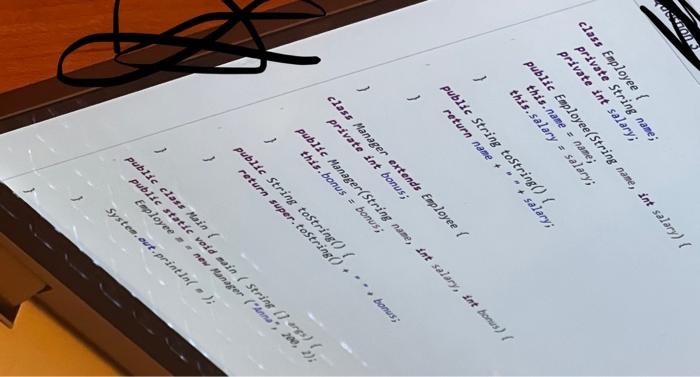 class Employee {
private String name;
private int salary;
public Employee(String name, int salary) {
this.name = name;
this.salary = salary;
}
public String toString() {
return name + " " + salary;
}
}
class Manager extends Employee {
private int bonus;
public Manager(String name, int salary, int bonus) {
this.bonus = bonus;
}
public String toString() {
return super.toString() + " " + bonus;
}
}
public class Main {
public static void main ( String [] args) {
Employee m = new Manager ("Anna", 200, 2);
System.out.println( m );
}
}